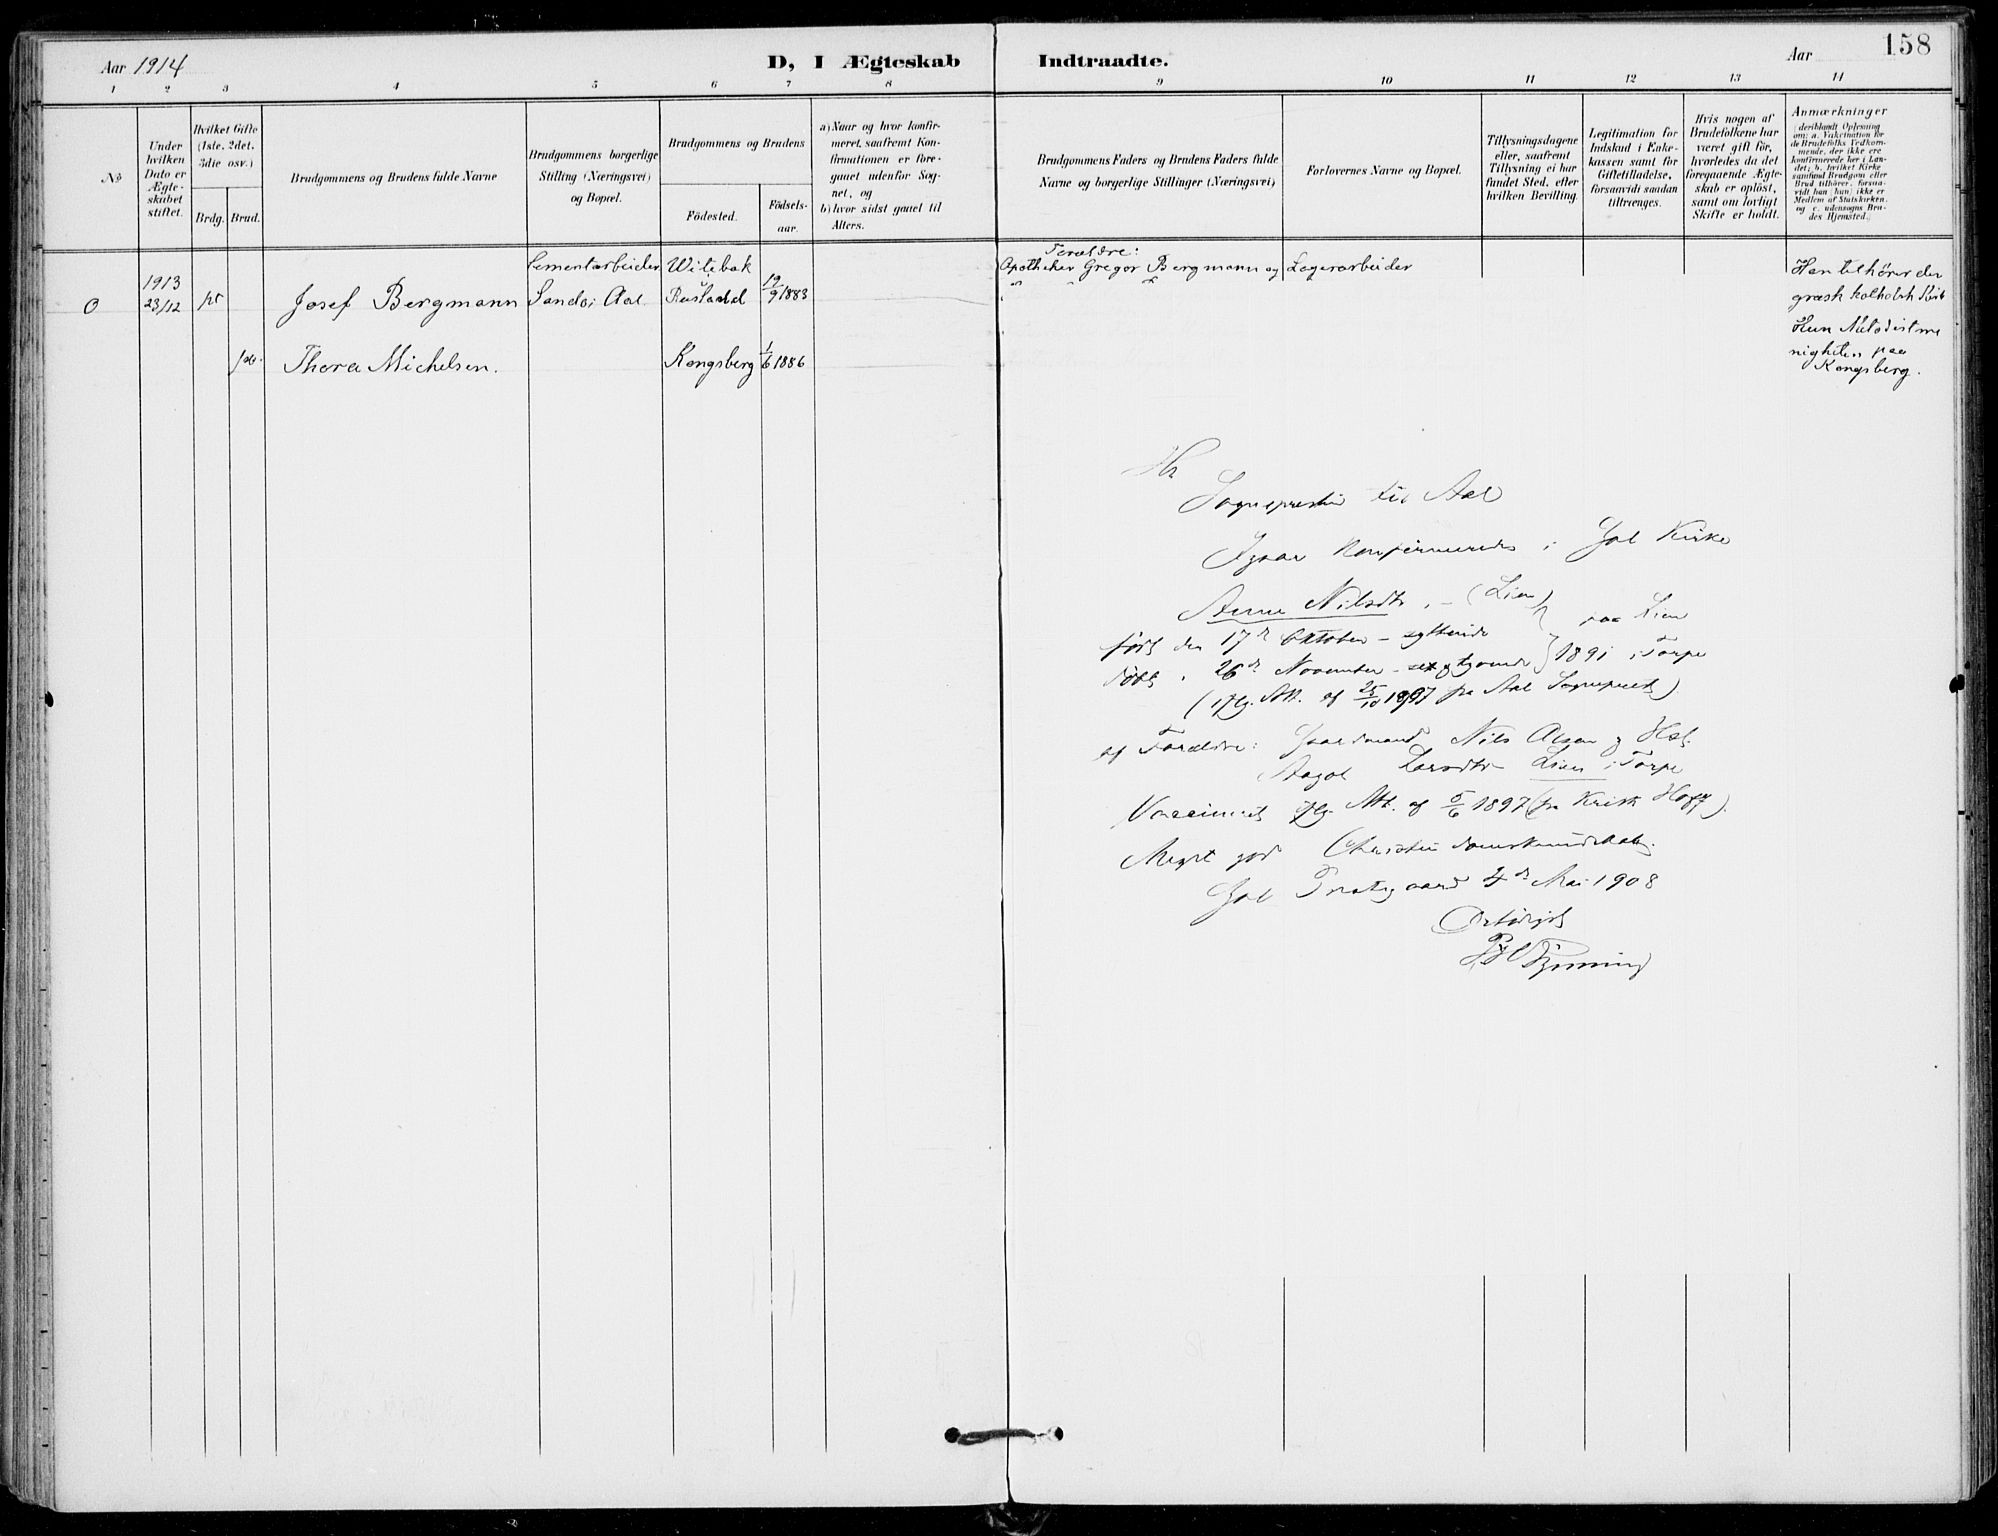 Aar 1914
D, I Ægteskab Indtraadte.
Aar
158
1 2 3 4 5 6 7 8 9 10 11 12 13 14
No
Under
hvilken
Dato er
Ægte-
skabet
stiftet.
Hvilket Gifte
(1ste, 2det,
3die osv.)
Brdg. Brud.
Brudgommens og Brudens fulde Navne
Brudgommens borgerlige
Stilling (Næringsvei)
og Bopæl.
Brudgommens og Brudens
Födested.
Födsels-
aar.
a) Naar og hvor konfir-
meret, saafremt Kon-
firmationen er fore-
gaaet udenfor Sog-
net, og
b) hvor sidst gaaet til
Alters.
Brudgommens Faders og Brudens Faders fulde
Navne og borgerlige Stillinger (Næringsvei)
Forlovernes Navne og Bopæl.
Tillysningsdagene
eller, saafremt
Tillysning ei har
fundet Sted, efter
hvilken Bevilling.
Legitimation for
Indskud i Enke-
kassen samt for
Giftetilladelse,
forsaavidt saadan
tiltrænges.
Hvis nogen af
Brudefolkene har
været gift för,
hvorledes da det
foregaaende Ægte-
skab er oplöst,
samt om lovligt
Skifte er holdt.
Anmærkninger
(deriblandt Oplysning
om: a. Vakcination for
de Brudefolks Vedkom-
mende, der ikke ere
konfirmerede her i Lan-
det; b. hvilket Kirke
samfund Brudgom eller
Brud tilhörer, forsaa-
vidt han (hun) ikke er
Medlem af Statskirken.
og c. udensogns Bru-
des Hjemsted.)
0
1913
23/12
Josef Bergmann
Cementarbeider
Sando i Aal
Witebsk
Rusland
19/9 1883
Forældre:
Apotheker Gregor Bergmann og
Lagerarbeider
Han tilhörer den
græsk katholsk
Thora Michelsen.
Kongsberg
1/6 1886
Hun Metodistme
nigheten paa
Kongsberg.
Hr
Sognepresten til Aal
Igaar konfirmeredes i Gol Kirke
Anne Nilsdtr. - (Lien)
født den 17de Oktober - syttende
paa Lien
døbt " 26de November - sex og tyvende
1891 i Torpe
(iflg. Att. af 25/10 1897 fra Aal Sogneprest)
af Forældre: Gaardmand Nils Olsen og Hst.
Aagot Larsdtr Lien i Torpe
Vaccineret iflg. Att. af 5/6 1897 (fra Krist. Hoff).
Meget god Christendomskundskab.
Gol Prestegaard 4de Mai 1908
Ærbødigst